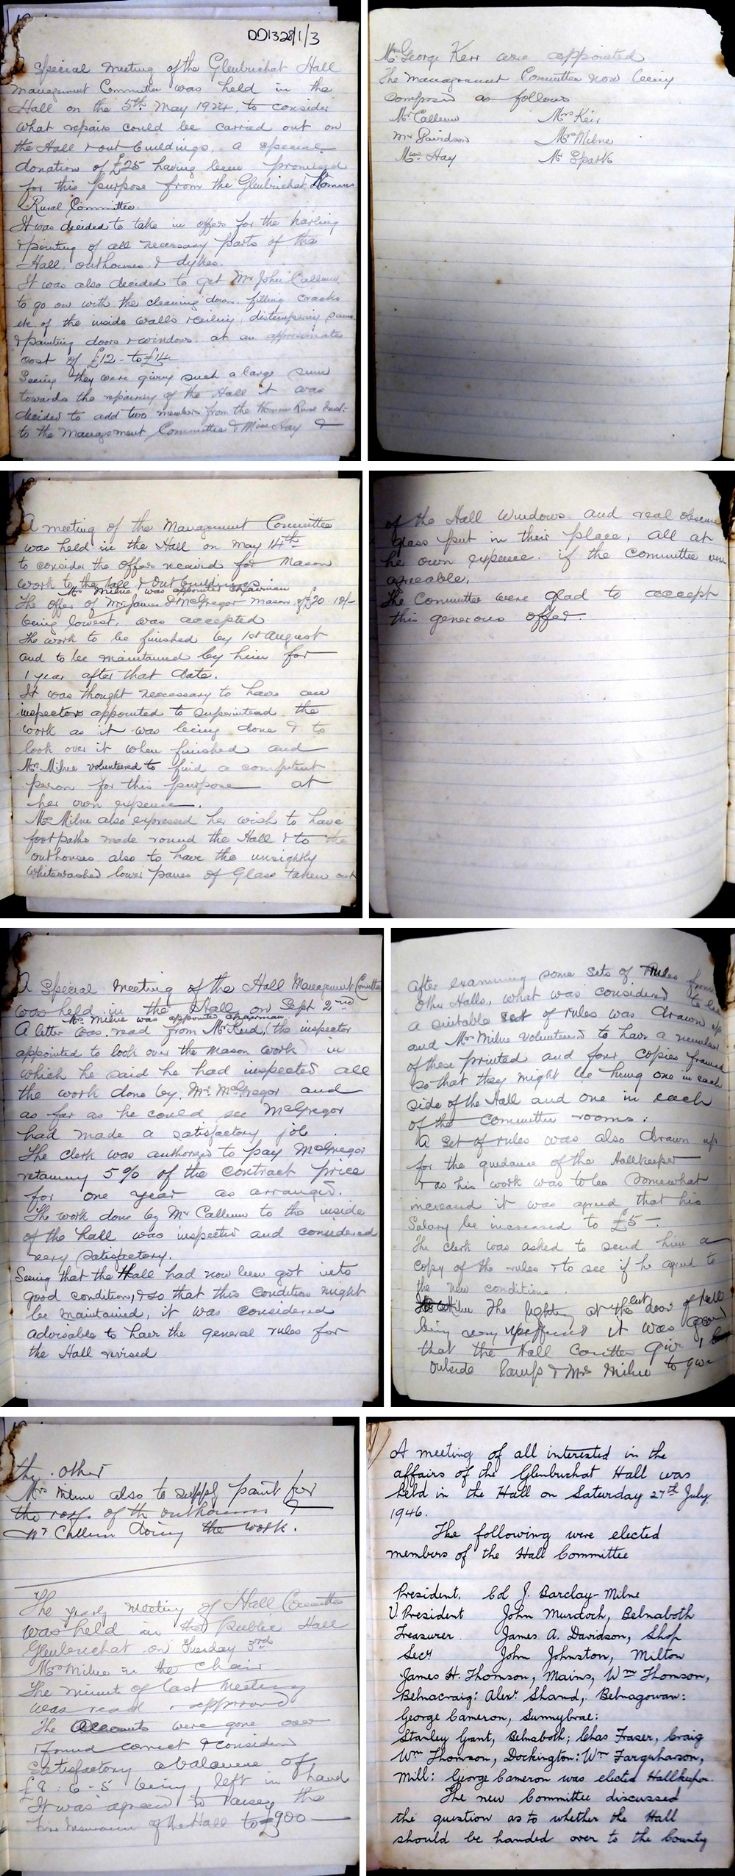 DD1328/1/3
A Special meeting of the Glenbuchat Hall
Management Committee was held in the
Hall on the 5th May 1924, to consider
what repairs could be carried out on
the Hall & out buildings, a special
donation of £25 having been promised
for this purpose from the Glenbuchat Womens
Rural Committee.
It was decided to take in offers for the harling
& pointing of all necessary parts of the
Hall, outhouses & dykes.
It was also decided to get Mr John Callum
to go on with the cleaning down, filling cracks
etc of the inside walls & ceiling, distempering same
& painting doors & windows at an approximate
cost of £12 - to £14
Seeing they were giving such a large sum
towards the repairing of the Hall it was
decided to add two members from the Womens Rural Inst.
to the Management Committee & Miss Hay &
Mr George Kerr were appointed
The management Committee now being
composed as follows
Mr Callum Mrs Keir
Mr Davidson Mrs Milne
Miss Hay Mr Spark
A meeting of the Management Committee
was held in the Hall on May 14th
to consider the offers received for Mason
work to the hall & out buildings.
Mrs Milne was appointed chairman
The offer of Mr James McGregor mason of £20 18/-
being lowest, was accepted
The work to be finished by 1st August
and to be maintained by him for
1 year after that date.
It was thought necessary to have an
inspector appointed to superintend the
work as it was being done & to
look over it when finished and
Mrs Milne volunteered to find a competent
person for this purpose at
her own expense.
Mrs Milne also expressed her wish to have
footpaths made round the Hall & to the
outhouses also to have the unsightly
whitewashed lower panes of Glass taken out
of the Hall Windows and real obscure
glass put in their place, all at
her own expense if the Committee were
agreeable.
The Committee were glad to accept
this generous offer.
A Special Meeting of the Hall Management Committee
was held in the Hall on Sept 2nd
Mrs Milne was appointed chairman
A letter was read from Mr Reid, the inspector
appointed to look over the Mason work in
which he said he had inspected all
the work done by Mr McGregor and
as far as he could see McGregor
had made a satisfactory job
The clerk was authorised to pay McGregor
retaining 5% of the contract price
for one year as arranged.
The work done by Mr Callum to the inside
of the hall was inspected and considered
very satisfactory.
Seeing that the Hall had now been got into
good condition, & so that this condition might
be maintained, it was considered
advisable to have the general rules for
the Hall revised
After examining some sets of Rules from
other Halls, what was considered to be
a suitable set of rules was drawn up
and Mrs Milne volunteered to have a number
of these printed and four copies framed
so that they might be hung one in each
side of the Hall and one in each
of the committee rooms.
A set of rules was also drawn up
for the guidance of the Hallkeeper
& as his work was to be somewhat
increased it was agreed that his
Salary be increased to £5 -
The clerk was asked to send him a
copy of the rules & to see if he agreed to
the new conditions.
The light at the door of hall
being very inefficient it was agreed
that the Hall Comttee give 1
outside lamp & Mrs Milne to give
the other
Mrs Milne also to supply paint for
the roof of the outhouses &
Mr Callum doing the work.
The yearly meeting of Hall Committee
was held in the Public Hall
Glenbuchat on Tuesday 3rd
Mrs Milne in the chair
The minute of last meeting
was read & approved
The Accounts were gone over
& found correct & considered
satisfactory a balance of
£8 : 6 - 5 being left in hand
It was agreed to raise the
Fire Insurance of the Hall to £900
A meeting of all interested in the
affairs of the Glenbuchat Hall was
held in the Hall on Saturday 27th July
1946.
The following were elected
members of the Hall Committee
President. Col J. Barclay-Milne
V President John Murdoch, Belnaboth
Treasurer James A. Davidson, Shop
Secy John Johnston, Milton
James H. Thomson, Mains, Wm Thomson,
Belnacraig: Alexr Shand, Belnagowan:
George Cameron, Sunnybrae:
Stanley Grant, Belnaboth; Chas Fraser, Craig
Wm Thomson, Dockington: Wm Farquharson,
Mill: George Cameron was elected Hallkeeper.
The new Committee discussed
the question as to whether the Hall
should be handed over to the County